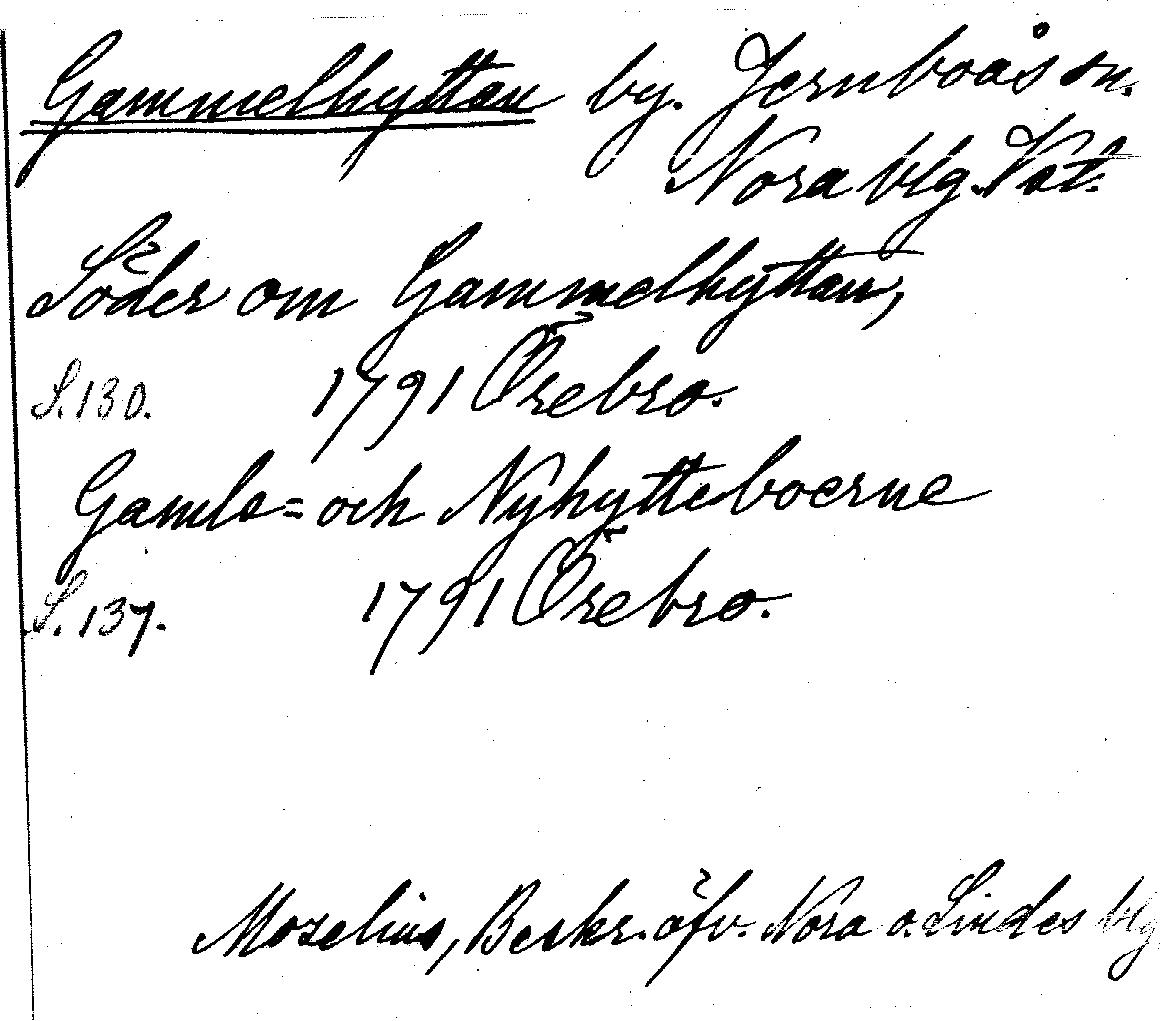 Gammelhyttan by. Jernboås sn.
Nora blg. Vstl.
Söder om Gammelhyttan,
S. 130. 1791 Örebro.
Gamle= och Nyhytteboerne
S. 137. 1791 Örebro.
Moselius, Beskr. öfv. Nora o. Lindes blg